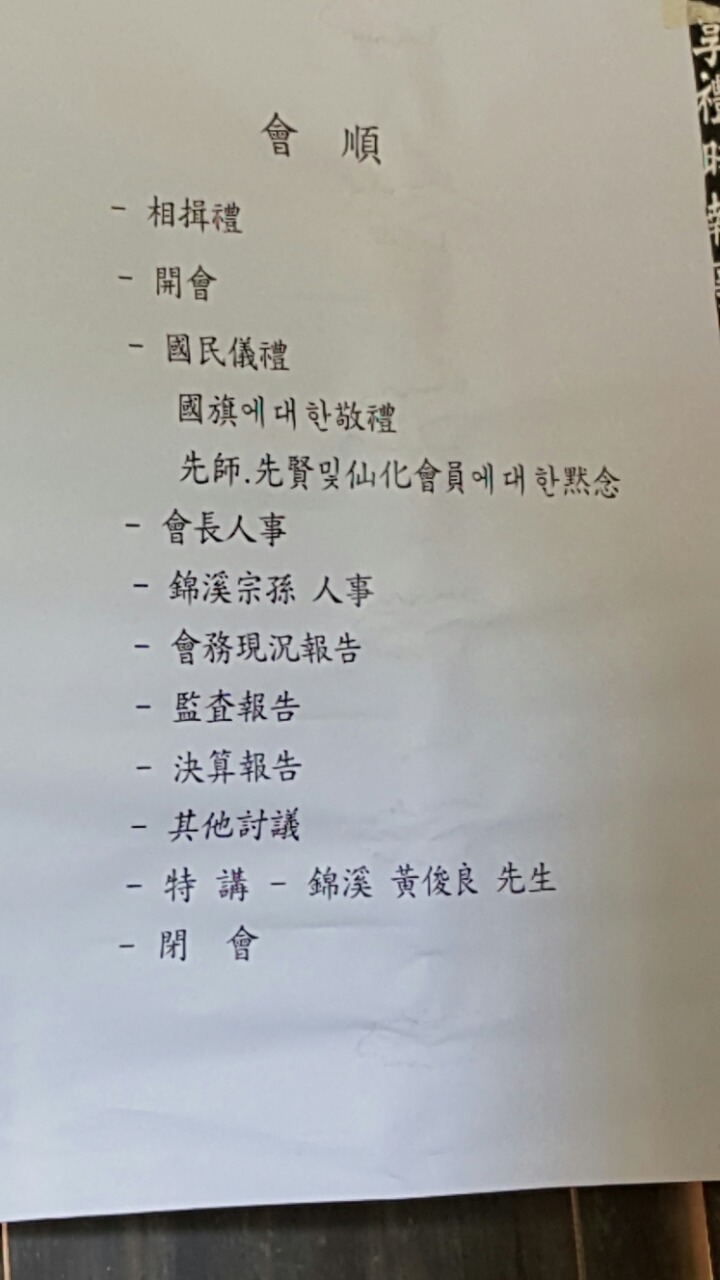 會 順
- 相揖禮
- 開會
- 國民儀禮
國旗에대한敬禮
先師.先賢및仙化會員에대한黙念
- 會長人事
- 錦溪宗孫 人事
- 會務現況報告
- 監査報告
- 決算報告
- 其他討議
- 特 講 - 錦溪 黃俊良 先生
- 閉 會